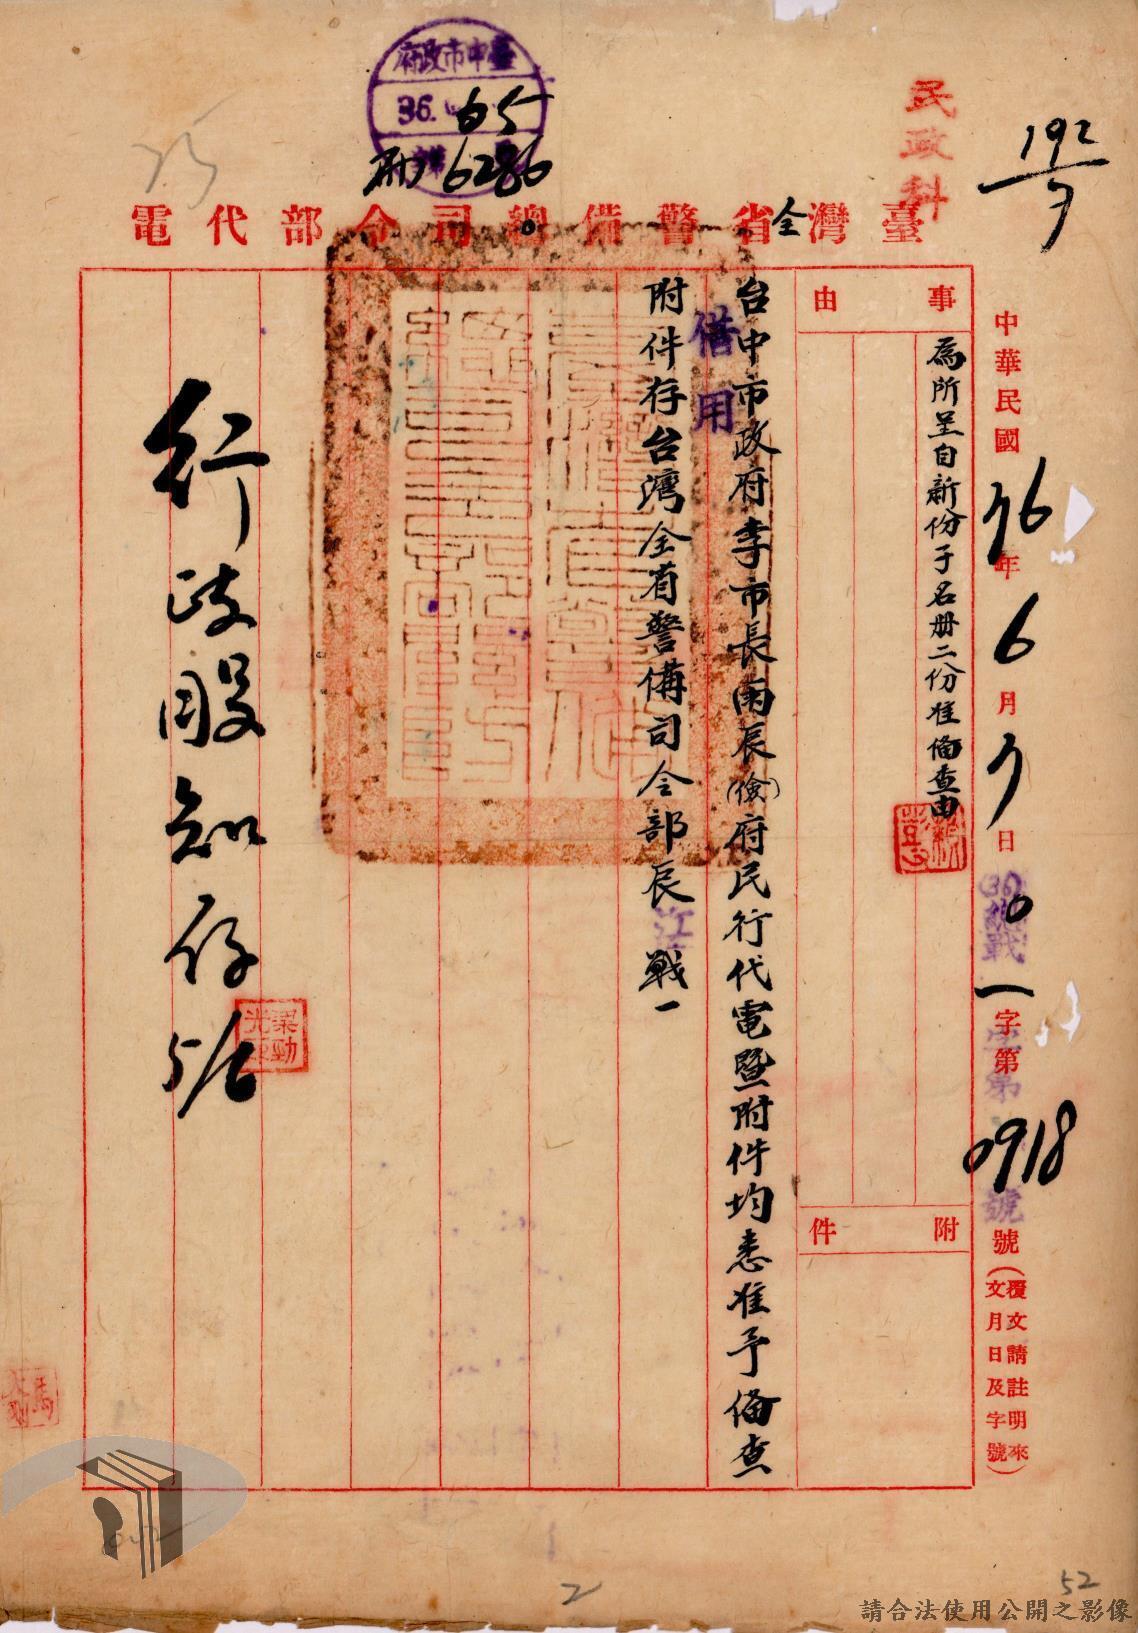 臺中市政府
36. 6 5
6286
民政科
192
7
臺灣全省警備總司令部代電
中華民國36年6月7日
(36)總戰一字第0918號
(覆文請註明來文月日及字號)
事由
為所呈自新份子名册二份准備查由
附件
借用
台中市政府李市長雨辰(儉)府民行代電暨附件均悉准予備查
附件存台灣全省警備司令部辰江戰一
行政股知存
梁勁光
2
52
請合法使用公開之影像